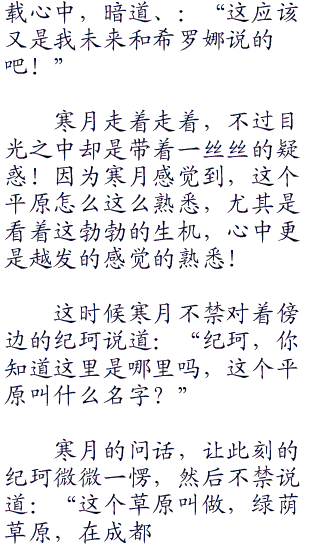 载心中，暗道、：“这应该
又是我未来和希罗娜说的
吧！”
寒月走着走着，不过目
光之中却是带着一丝丝的疑
惑！因为寒月感觉到，这个
平原怎么这么熟悉，尤其是
看着这勃勃的生机，心中更
是越发的感觉的熟悉！
这时候寒月不禁对着傍
边的纪珂说道：“纪珂，你
知道这里是哪里吗，这个平
原叫什么名字？”
寒月的问话，让此刻的
纪珂微微一愣，然后不禁说
道：“这个草原叫做，绿荫
草原，在成都